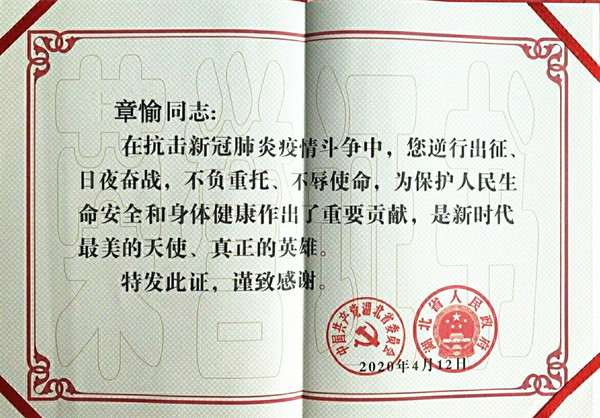 荣誉证书
章愉同志：
在抗击新冠肺炎疫情斗争中，您逆行出征、
日夜奋战，不负重托、不辱使命，为保护人民生
命安全和身体健康作出了重要贡献，是新时代
最美的天使、真正的英雄。
特发此证，谨致感谢。
中国共产党湖北省委员会
湖北省人民政府
2020年4月12日